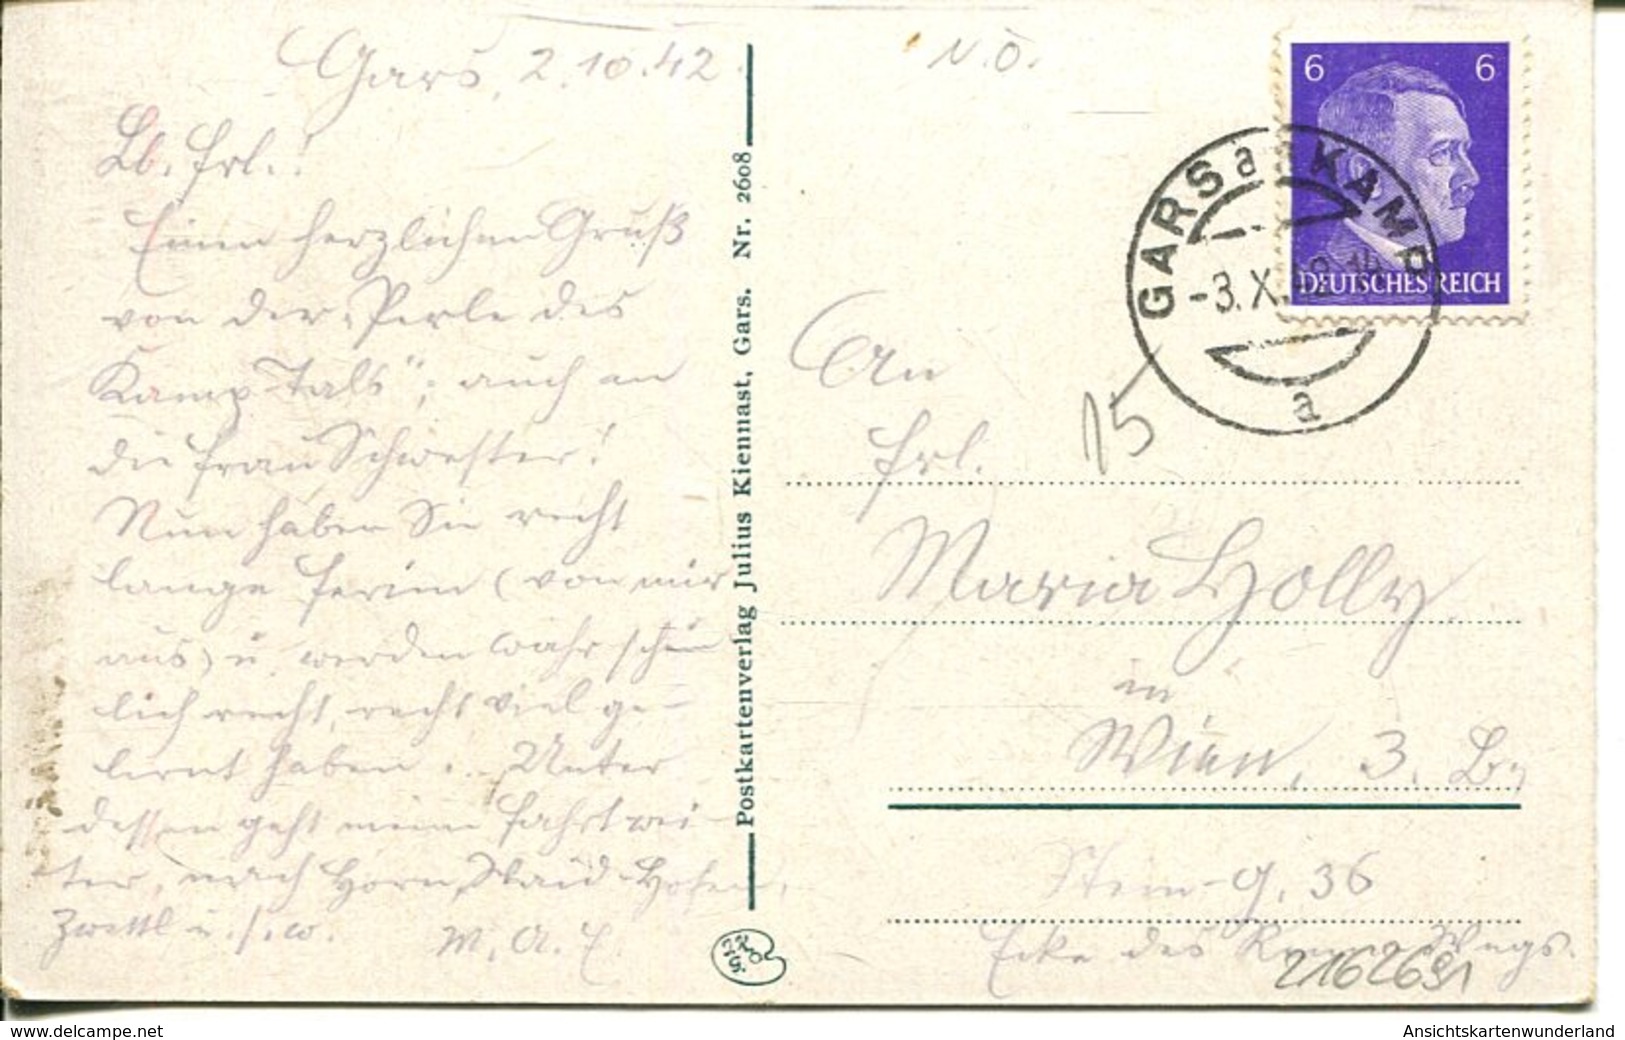 Gars, 2.10.42.
Lb. Frl.!
Einen herzlichen Gruß
von der "Perle des
Kamp-Tals"; auch an
die Frau Schwester!
Nun haben Sie recht
lange Ferien (von mir
aus) u. werden wahrschein
lich recht, recht viel ge-
lernt haben. Unter
dessen geht meine Fahrt wei-
ter, nach Horn, Waid-Hofen,
Zwettl u.s.w. M.A.
Postkartenverlag Julius Kiennast, Gars. Nr. 2608
N.Ö.
6 6
DEUTSCHES REICH
GARS a KAMP
-3.X.42.
a
15
An
Frl.
Maria Holly
in
Wien, 3. Bz
Stein-G. 36
Ecke des Wegs.
2162691
www.delcampe.net
Ansichtskartenwunderland